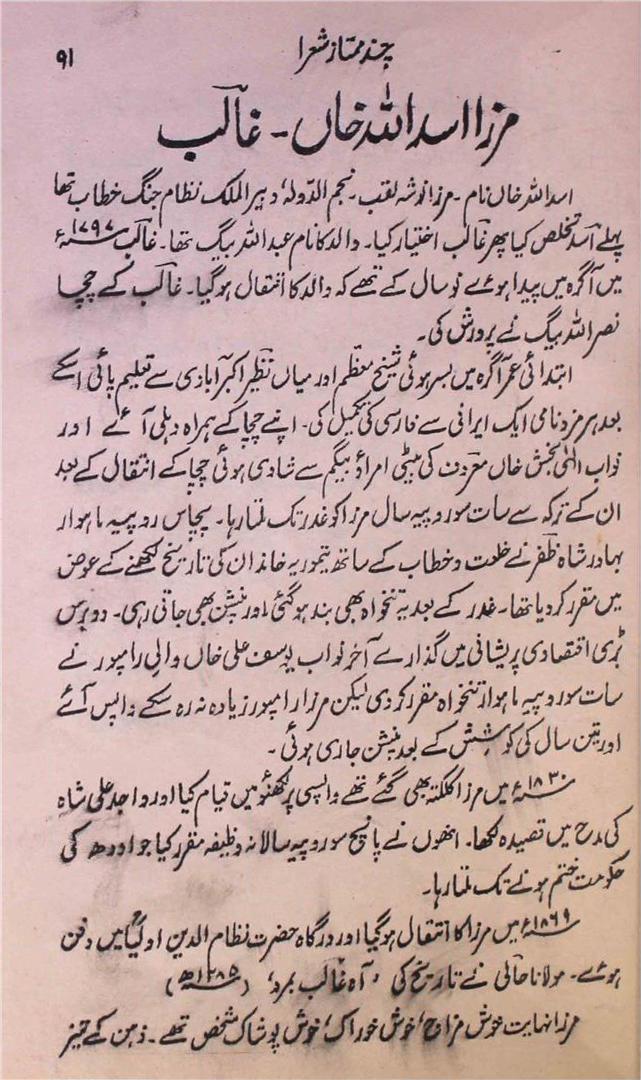 ۹۱
چند ممتاز شعرا
مرزا اسد اللہ خاں ۔ غالب
اسد اللہ خاں نام ۔ مرزا نوشہ لقب ۔ نجم الدولہ، دبیر الملک نظام جنگ خطاب تھا
پہلے اسد تخلص کیا پھر غالب اختیار کیا۔ والد کا نام عبد اللہ بیگ تھا۔ غالب ۱۷۹۷ء
میں آگرہ میں پیدا ہوئے نو سال کے تھے کہ والد کا انتقال ہوگیا۔ غالب کے چچا
نصر اللہ بیگ نے پرورش کی۔
ابتدائی عمر آگرہ میں بسر ہوئی شیخ معظم اور میاں نظیر اکبرآبادی سے تعلیم پائی اسکے
بعد ہرمزد نامی ایک ایرانی سے فارسی کی تکمیل کی۔ اپنے چچا کے ہمراہ دہلی آئے اور
نواب الٰہی بخش خاں معروف کی بیٹی امراؤ بیگم سے شادی ہوئی چچا کے انتقال کے بعد
ان کے ترکہ سے سات سو روپیہ سال مرزا کو غدر تک ملتا رہا۔ پچاس روپیہ ماہوار
بہادر شاہ ظفر نے خلعت و خطاب کے ساتھ تیموریہ خاندان کی تاریخ لکھنے کے عوض
میں مقرر کر دیا تھا۔ غدر کے بعد یہ تنخواہ بھی بند ہوگئی اور پنشن بھی جاتی رہی۔ دو برس
بڑی اقتصادی پریشانی میں گذارے آخر نواب یوسف علی خاں والی رامپور نے
سات سو روپیہ ماہوار تنخواہ مقرر کر دی لیکن مرزا رامپور زیادہ نہ رہ سکے واپس آئے
اور تین سال کی کوشش کے بعد پنشن جاری ہوئی ۔
۱۸۳۰ء میں مرزا کلکتہ بھی گئے تھے واپسی پر لکھنؤ میں قیام کیا اور واجد علی شاہ
کی مدح میں قصیدہ لکھا۔ انھوں نے پانچ سو روپیہ سالانہ وظیفہ مقرر کیا جو اودھ کی
حکومت ختم ہونے تک ملتا رہا۔
۱۸۶۹ء میں مرزا کا انتقال ہوگیا اور درگاہ حضرت نظام الدین اولیاؒ میں دفن
ہوئے۔ مولانا حالی نے تاریخ کی ’آہ غالب بمرد‘ (۱۲۸۵ھ)
مرزا نہایت خوش مزاج، خوش خوراک، خوش پوشاک شخص تھے۔ ذہن کے تیز